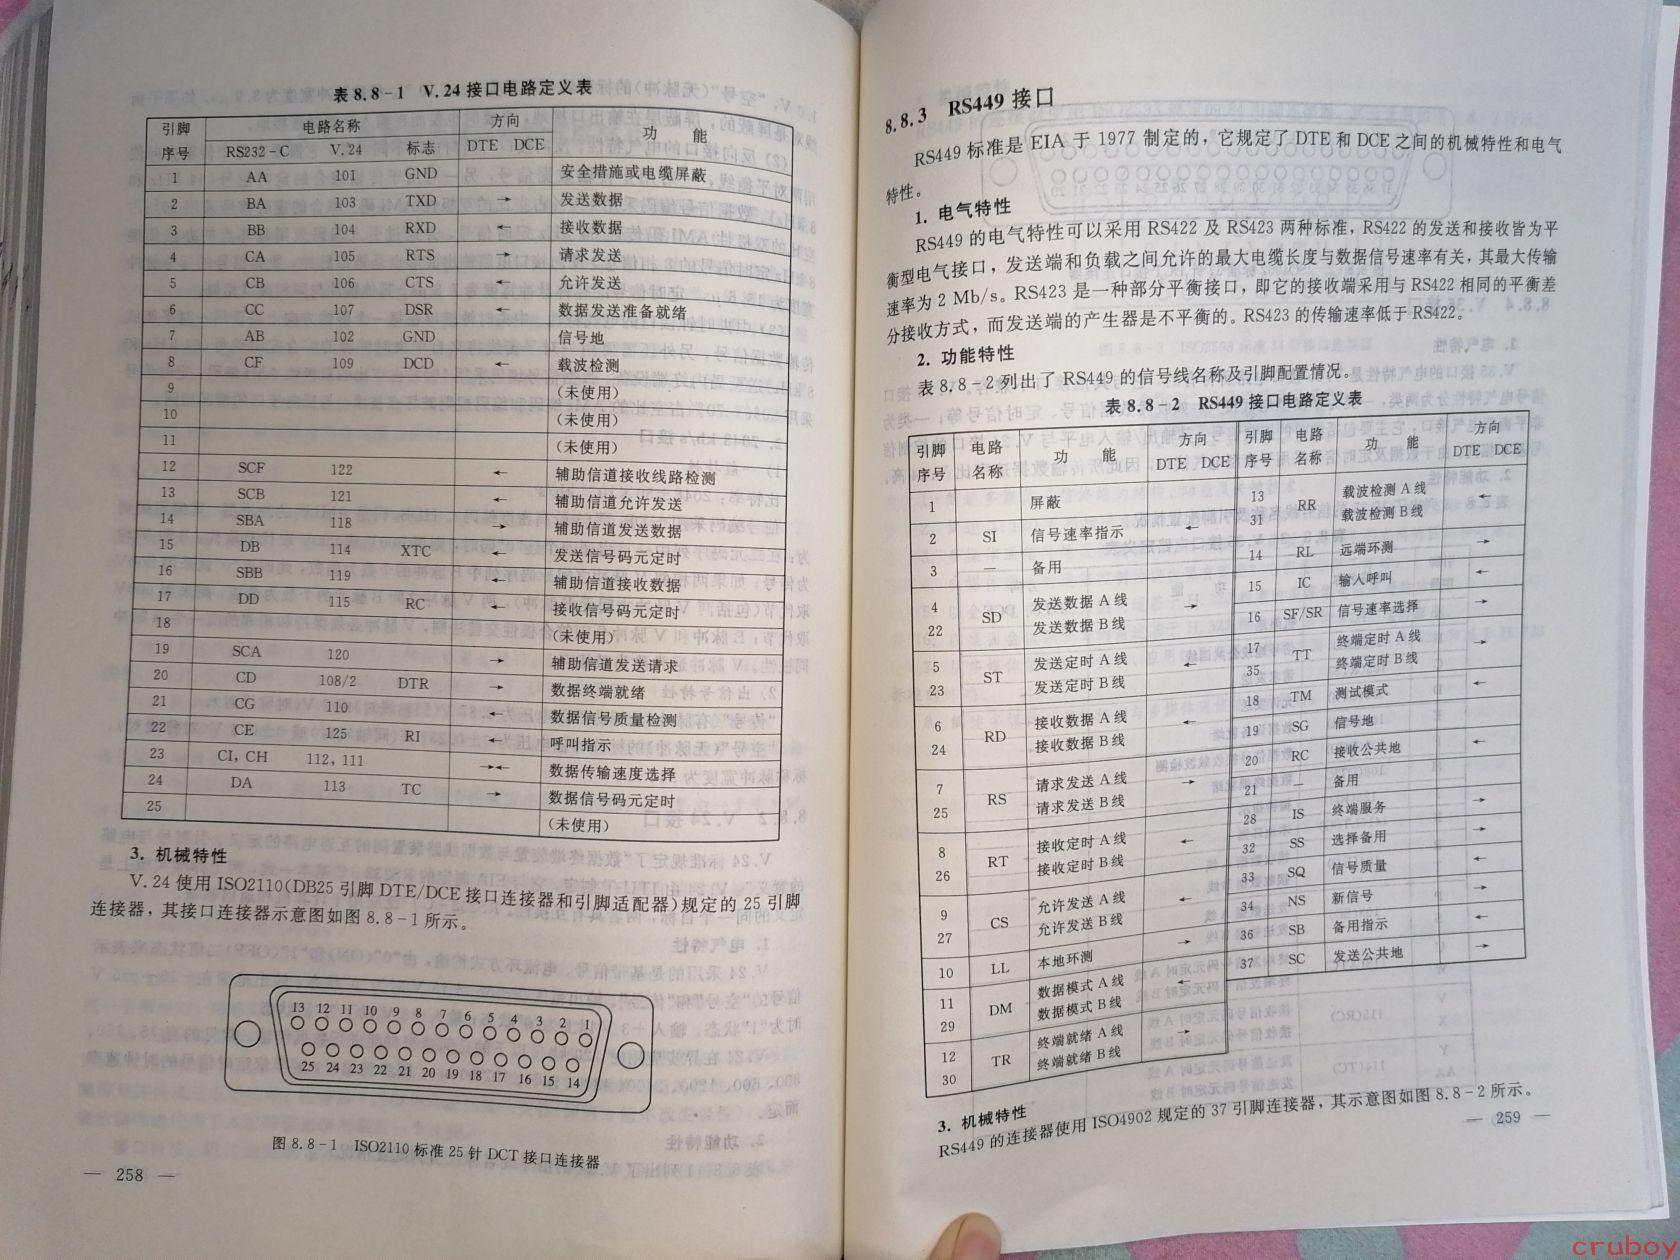 表 8.8-1 V.24 接口电路定义表
引脚序号 电路名称 方向 功 能
RS232-C V.24 标志 DTE DCE
1 AA 101 GND 安全措施或电缆屏蔽
2 BA 103 TXD → 发送数据
3 BB 104 RXD ← 接收数据
4 CA 105 RTS → 请求发送
5 CB 106 CTS ← 允许发送
6 CC 107 DSR ← 数据发送准备就绪
7 AB 102 GND 信号地
8 CF 109 DCD ← 载波检测
9 (未使用)
10 (未使用)
11 (未使用)
12 SCF 122 ← 辅助信道接收线路检测
13 SCB 121 ← 辅助信道允许发送
14 SBA 118 → 辅助信道发送数据
15 DB 114 XTC ← 发送信号码元定时
16 SBB 119 ← 辅助信道接收数据
17 DD 115 RC ← 接收信号码元定时
18 (未使用)
19 SCA 120 → 辅助信道发送请求
20 CD 108/2 DTR → 数据终端就绪
21 CG 110 ← 数据信号质量检测
22 CE 125 RI ← 呼叫指示
23 CI, CH 112, 111 →← 数据传输速度选择
24 DA 113 TC → 数据信号码元定时
25 (未使用)
3. 机械特性
V.24 使用 ISO2110(DB25 引脚 DTE/DCE 接口连接器和引脚适配器)规定的 25 引脚
连接器，其接口连接器示意图如图 8.8-1 所示。
13 12 11 10 9 8 7 6 5 4 3 2 1
25 24 23 22 21 20 19 18 17 16 15 14
图 8.8-1 ISO2110 标准 25 针 DCT 接口连接器
— 258 —
8.8.3 RS449 接口
RS449 标准是 EIA 于 1977 制定的，它规定了 DTE 和 DCE 之间的机械特性和电气
特性。
1. 电气特性
RS449 的电气特性可以采用 RS422 及 RS423 两种标准，RS422 的发送和接收皆为平
衡型电气接口，发送端和负载之间允许的最大电缆长度与数据信号速率有关，其最大传输
速率为 2 Mb/s。RS423 是一种部分平衡接口，即它的接收端采用与 RS422 相同的平衡差
分接收方式，而发送端的产生器是不平衡的。RS423 的传输速率低于 RS422。
2. 功能特性
表 8.8-2 列出了 RS449 的信号线名称及引脚配置情况。
表 8.8-2 RS449 接口电路定义表
引脚序号 电路名称 功 能 方向 DTE DCE
1 屏蔽
2 SI 信号速率指示 ←
3 — 备用
4 SD 发送数据 A 线 →
22 发送数据 B 线
5 ST 发送定时 A 线 ←
23 发送定时 B 线
6 RD 接收数据 A 线 ←
24 接收数据 B 线
7 RS 请求发送 A 线 →
25 请求发送 B 线
8 RT 接收定时 A 线 ←
26 接收定时 B 线
9 CS 允许发送 A 线 ←
27 允许发送 B 线
10 LL 本地环测 →
11 DM 数据模式 A 线 ←
29 数据模式 B 线
12 TR 终端就绪 A 线 →
30 终端就绪 B 线
引脚序号 电路名称 功 能 方向 DTE DCE
13 RR 载波检测 A 线 ←
31 载波检测 B 线
14 RL 远端环测 →
15 IC 输入呼叫 ←
16 SF/SR 信号速率选择 →
17 TT 终端定时 A 线 →
35 终端定时 B 线
18 TM 测试模式 ←
19 SG 信号地
20 RC 接收公共地 ←
21 — 备用
28 IS 终端服务 →
32 SS 选择备用 →
33 SQ 信号质量 ←
34 NS 新信号 →
36 SB 备用指示 ←
37 SC 发送公共地 →
3. 机械特性
RS449 的连接器使用 ISO4902 规定的 37 引脚连接器，其示意图如图 8.8-2 所示。
— 259 —
cruboy